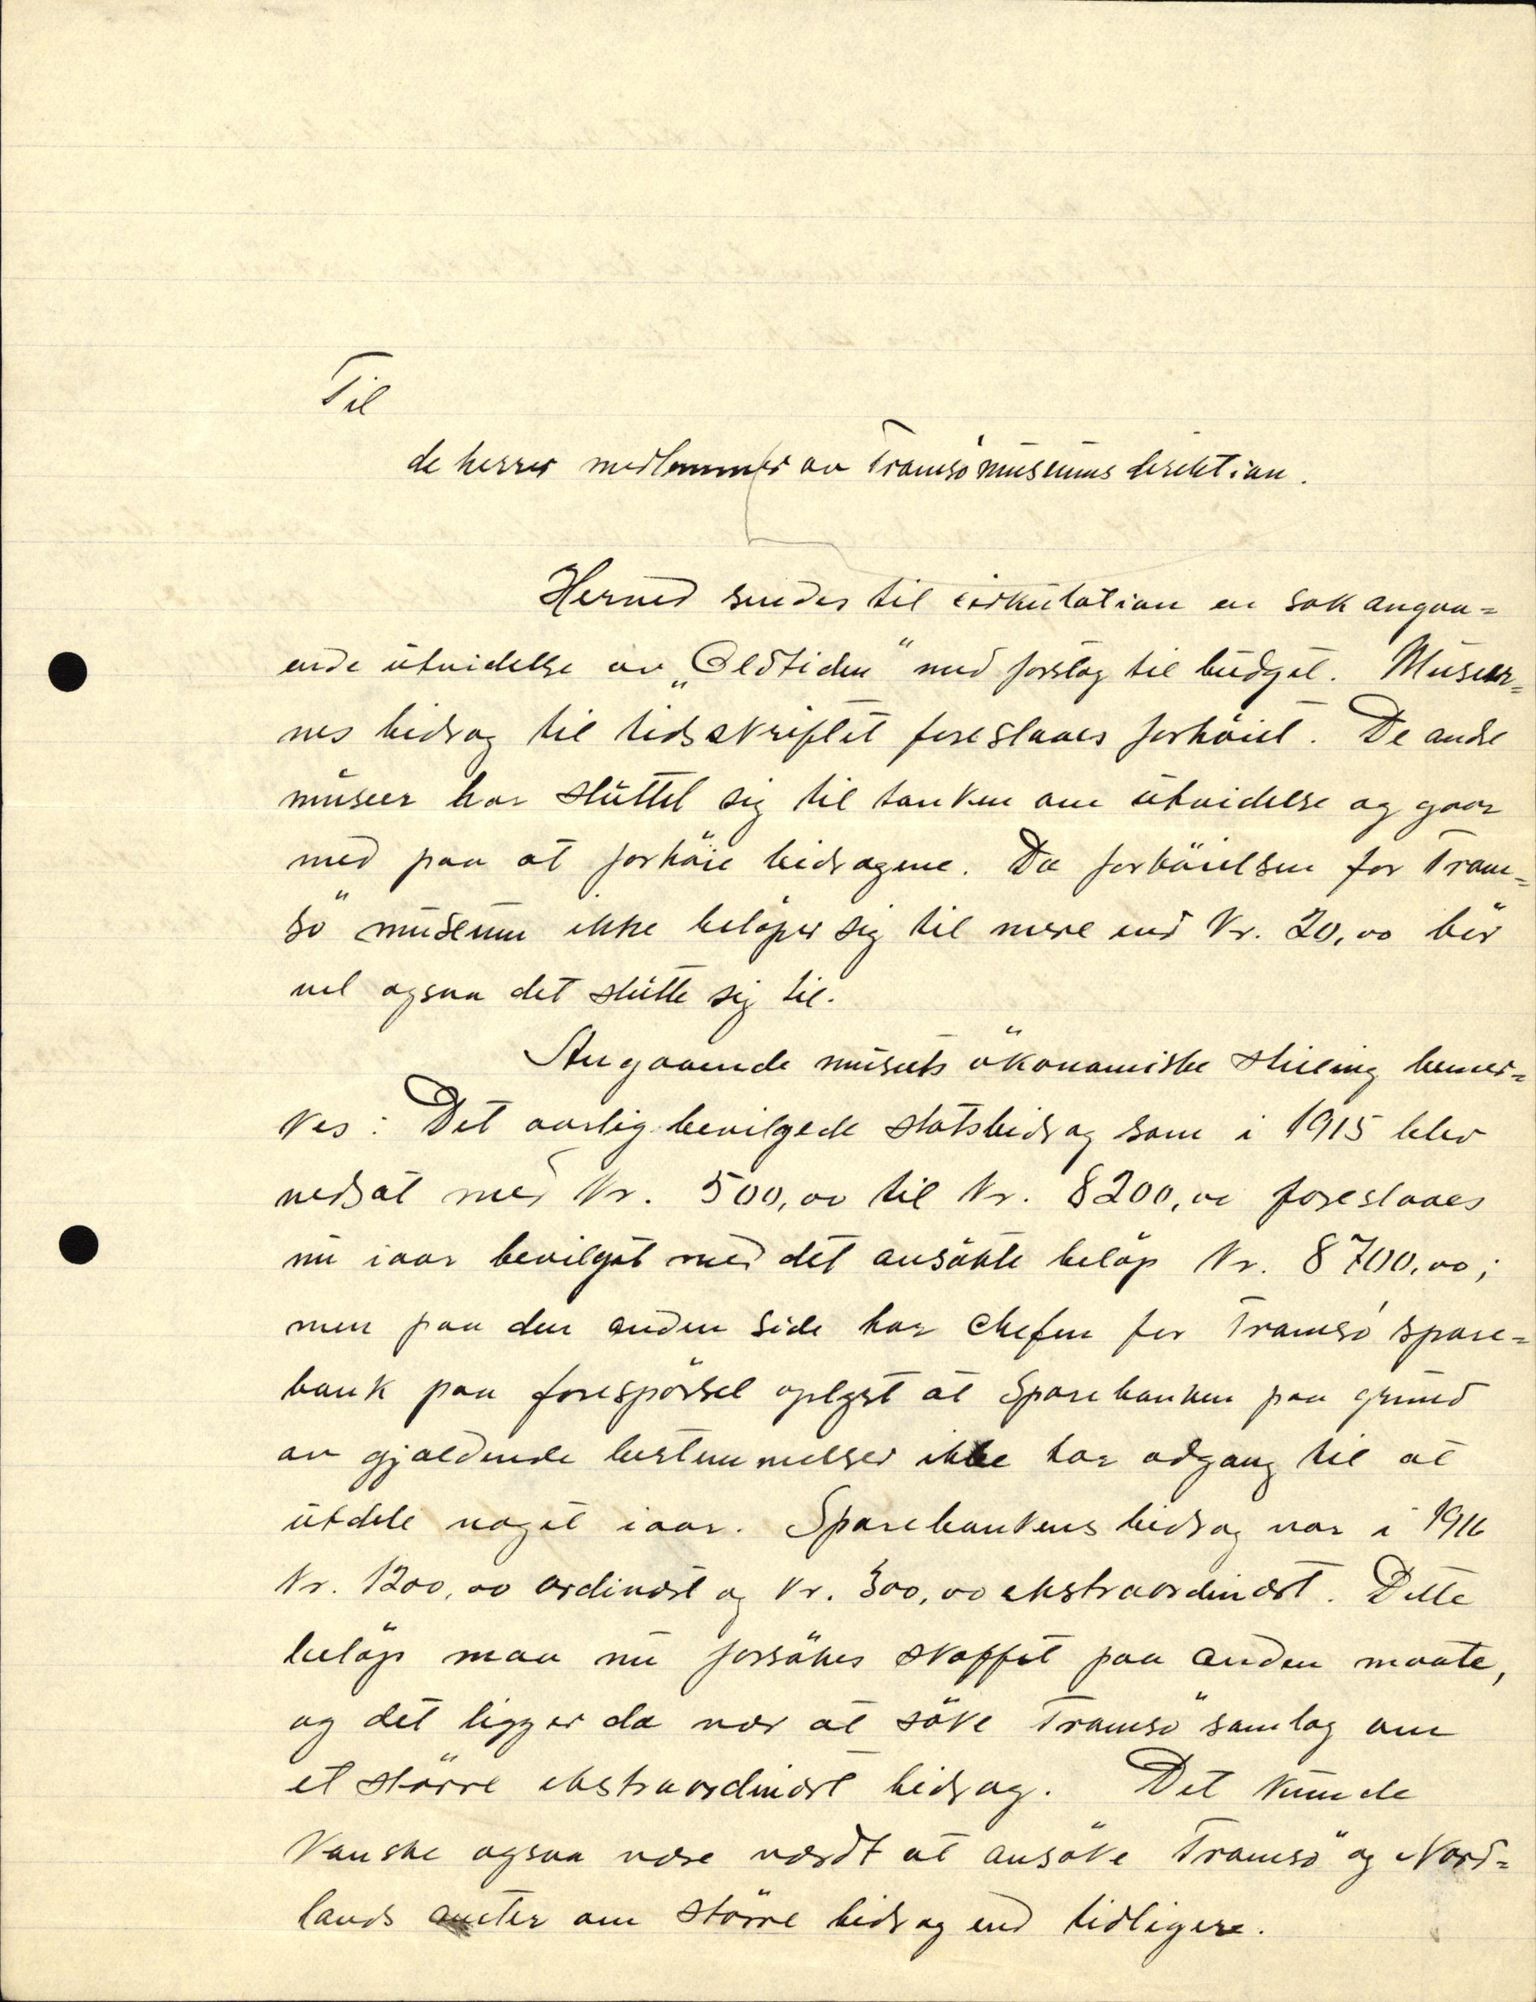 Til
de herrer medlemmer av Tromsö museums direktion.
Herved sendes til cirkulation en sak angaa=
ende utvidelse av „Oldtiden" med forslag til budget. Museer=
nes bidrag til tidsskriftet foreslaaes forhöiet. De andre
museer har sluttet sig til tanken om utvidelse og gaar
med paa at forhöie bidragene. Da forhöielsen for Trom=
sö museum ikke belöper sig til mere end Kr. 20,00 bör
vel ogsaa det slutte sig til.
Angaaende museets ökonomiske stilling bemer=
kes: Det aarlig bevilgede statsbidrag som i 1915 blev
nedsat med Kr. 500,00 til Kr. 8200,00 foreslaaes
nu iaar bevilget med det ansökte belöp Kr. 8700,00;
men paa den anden side har chefen for Tromsö spare=
bank paa forespörsel oplyst at Sparebanken paa grund
av gjældende bestemmelser ikke har adgang til at
utdele noget iaar. Sparebankens bidrag var i 1916
Kr. 1200,00 ordinært og Kr. 300,00 ekstraordinært. Dette
belöp maa nu forsökes skaffet paa anden maate,
og det ligger da nær at söke Tromsö samlag om
et större ekstraordinært bidrag. Det kunde
kanske ogsaa være værdt at ansöke Tromsö og Nord=
lands amter om större bidrag end tidligere.